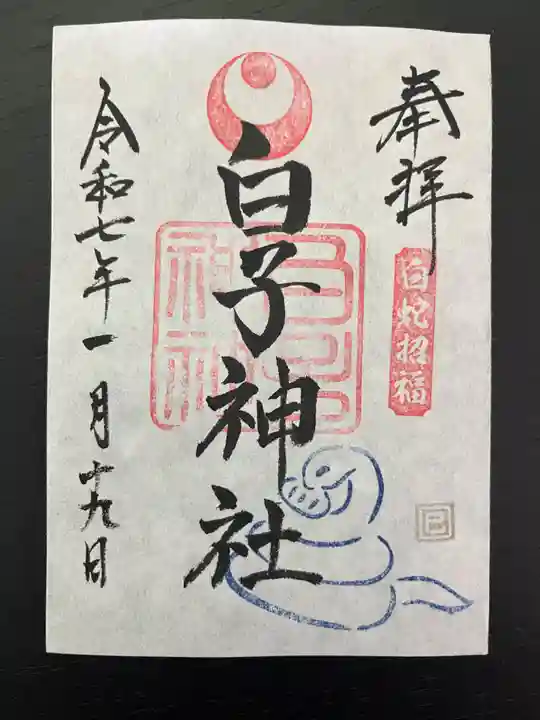 奉拝
白蛇招福
巳
白子神社
令和七年一月十九日